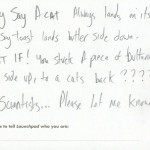 Say A cat Always lands on its
say toast lands butter side down.
T IF! you stick A piece of Buttered
side up, to a cats back ????
Scientists... Please let me know
to tell Launchpad who you are: